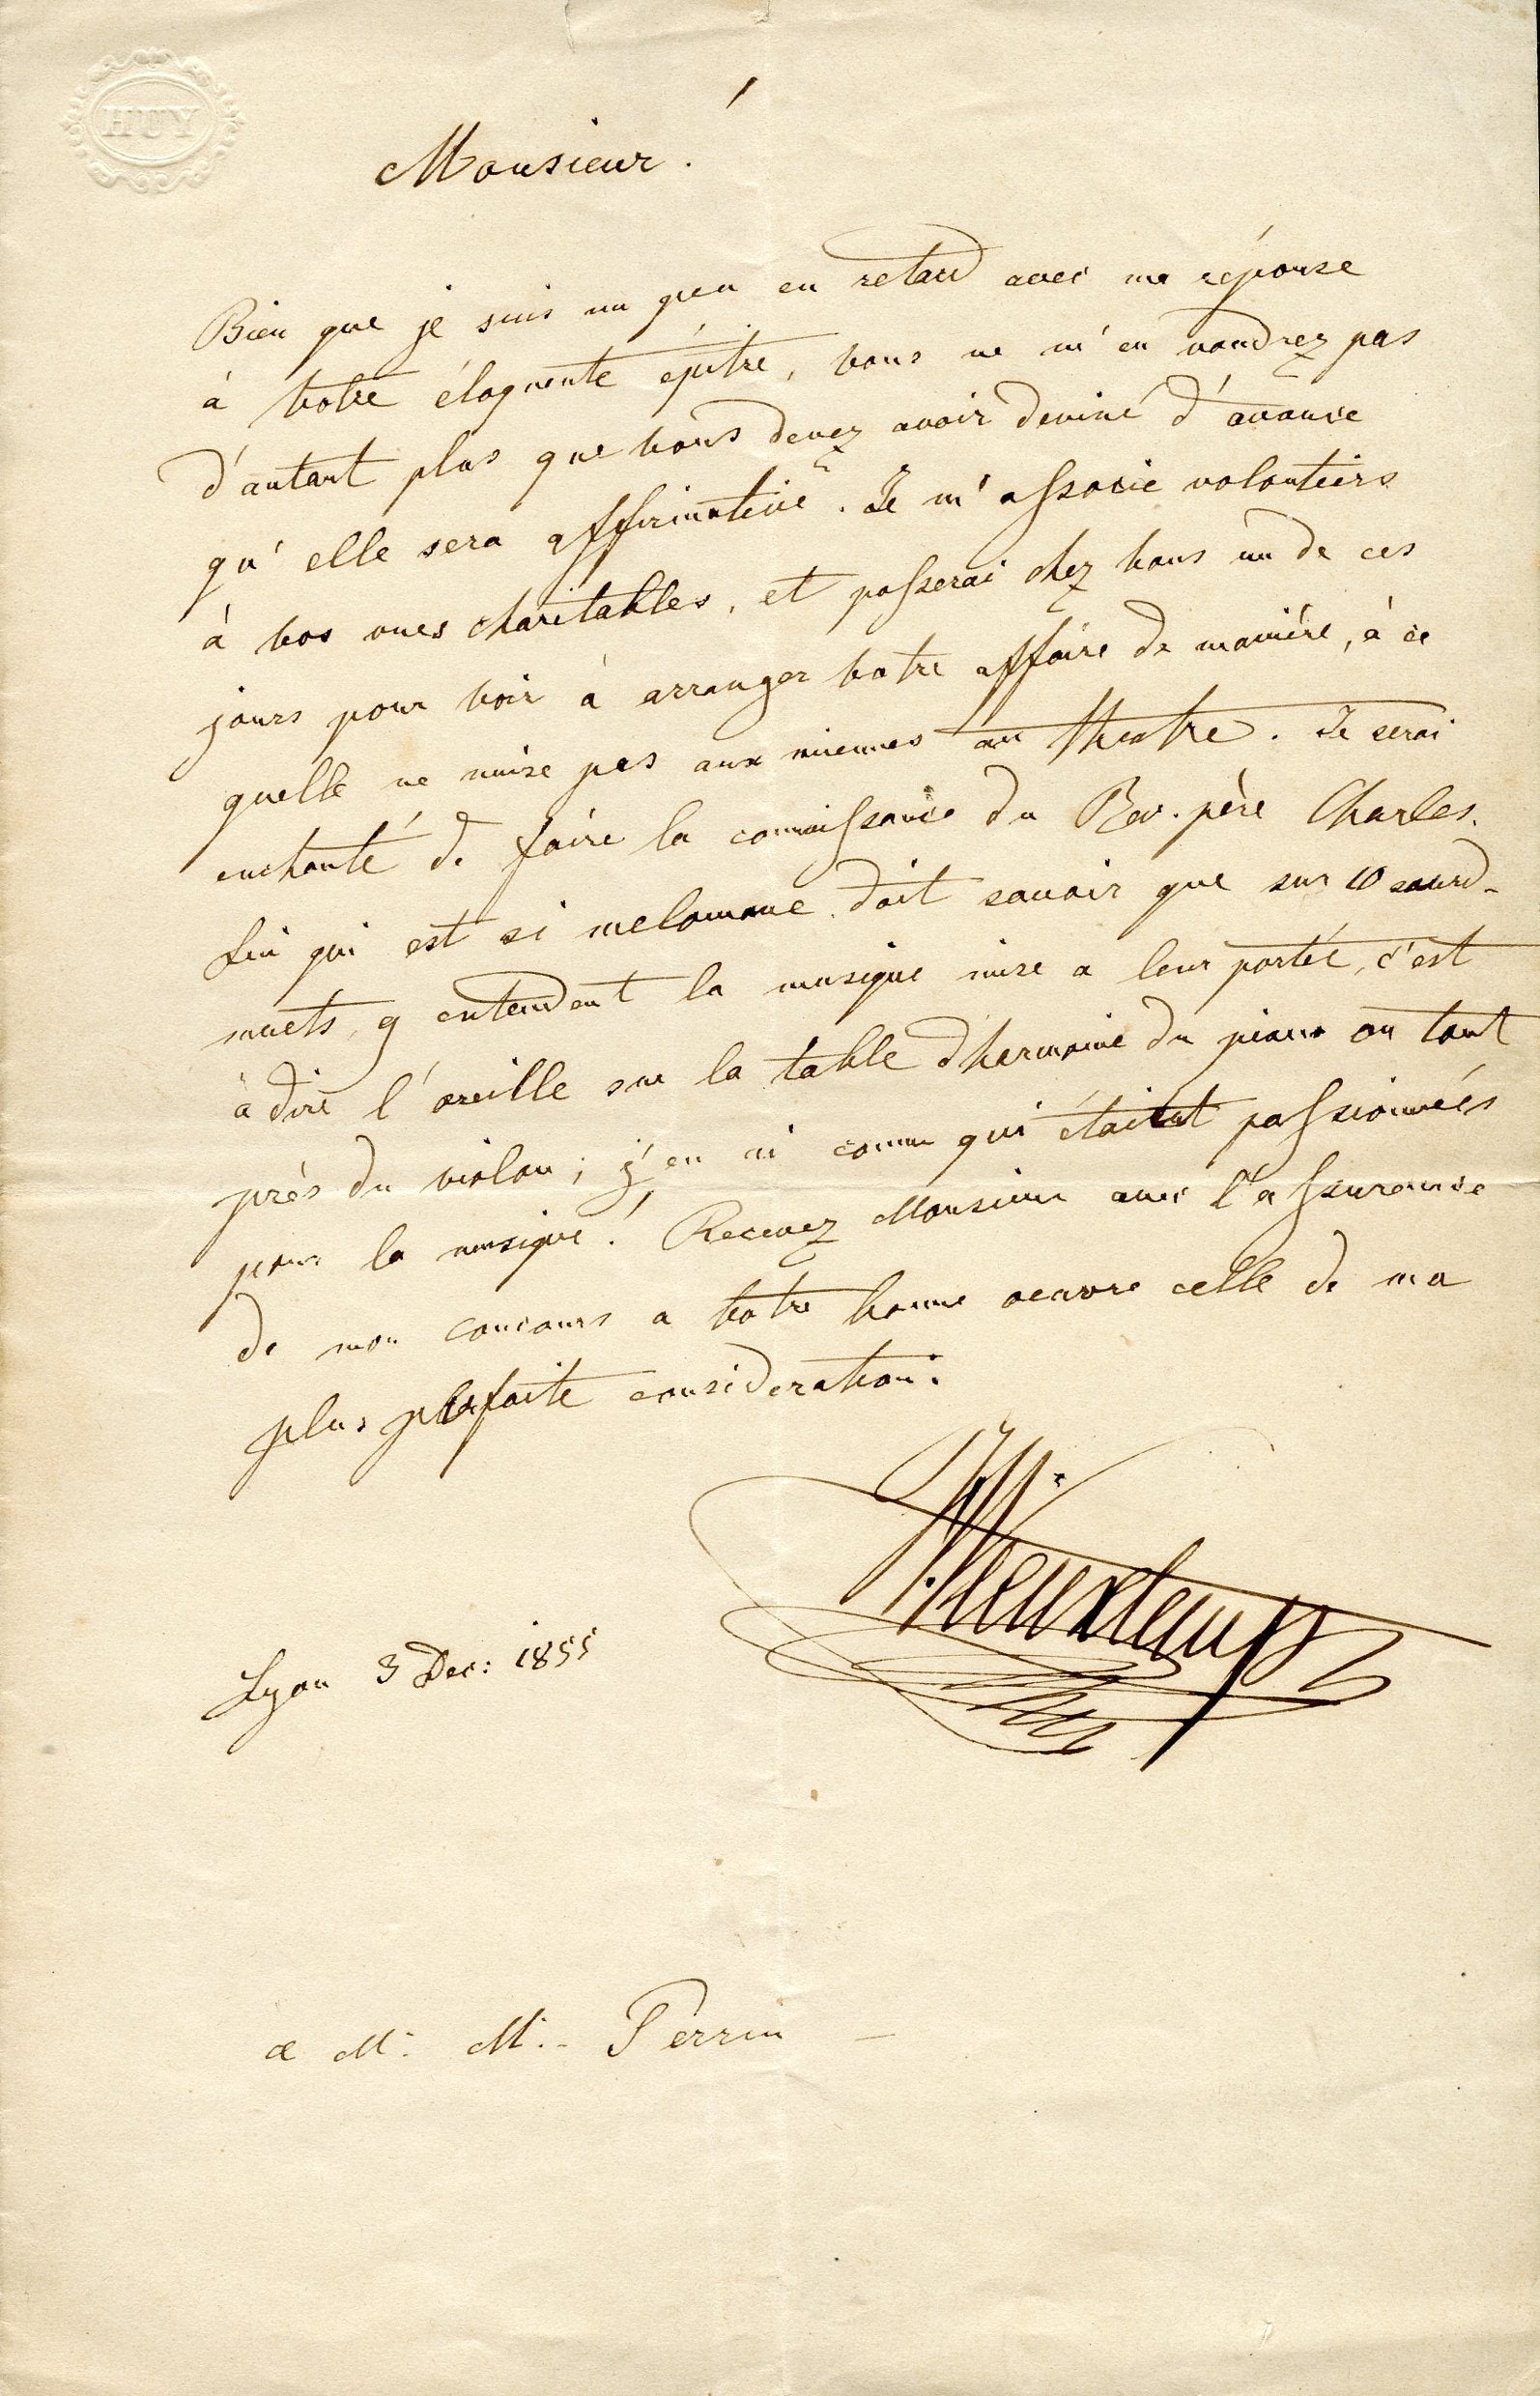 HUY
Monsieur!
Bien que je suis un peu en retard avec ma réponse
à votre éloquente épitre, vous ne m'en voudrez pas
d'autant plus que vous devez avoir deviné d'avance
qu'elle sera affirmative. Je m'associe volontiers
à vos vues charitables, et passerai chez vous un de ces
jours pour voir à arranger votre affaire de manière, à ce
quelle ne nuise pas aux miennes au theatre. Je serai
enchanté de faire la connaissance du Rev. père Charles.
Lui qui est si melomane doit savoir que sur 10 sourd-
muets, 9 entendent la musique mise a leur portée, c'est
à dire l'oreille sur la table d'harmonie du piano ou tout
près du violon; j'en ai connu qui étaient passionnés
pour la musique! Recevez Monsieur avec l'assurance
de mon concours a votre bonne oeuvre celle de ma
plus parfaite consideration.
H. Vieuxtemps
Lyon 3 Dec: 1855
a M. M. Perrin